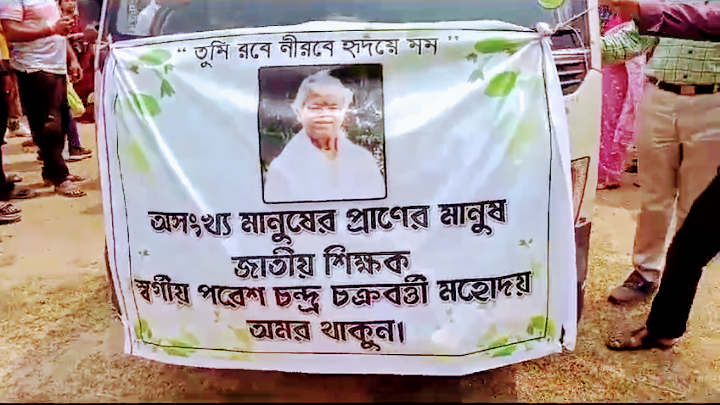 “ তুমি রবে নীরবে হৃদয়ে মম ”
অসংখ্য মানুষের প্রাণের মানুষ
জাতীয় শিক্ষক
স্বর্গীয় পরেশ চন্দ্র চক্রবর্ত্তী মহোদয়
অমর থাকুন।